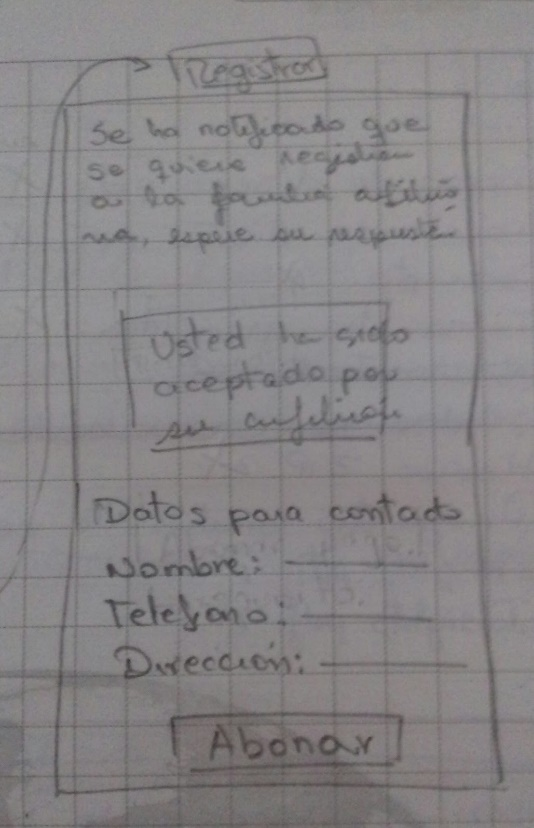 Registrar
Se ha notificado que
se quiere registrar
a la familia
espere su respuesta.
Usted ha sido
aceptado por
su
Datos para contacto
Nombre:
Telefono:
Dirección:
Abonar